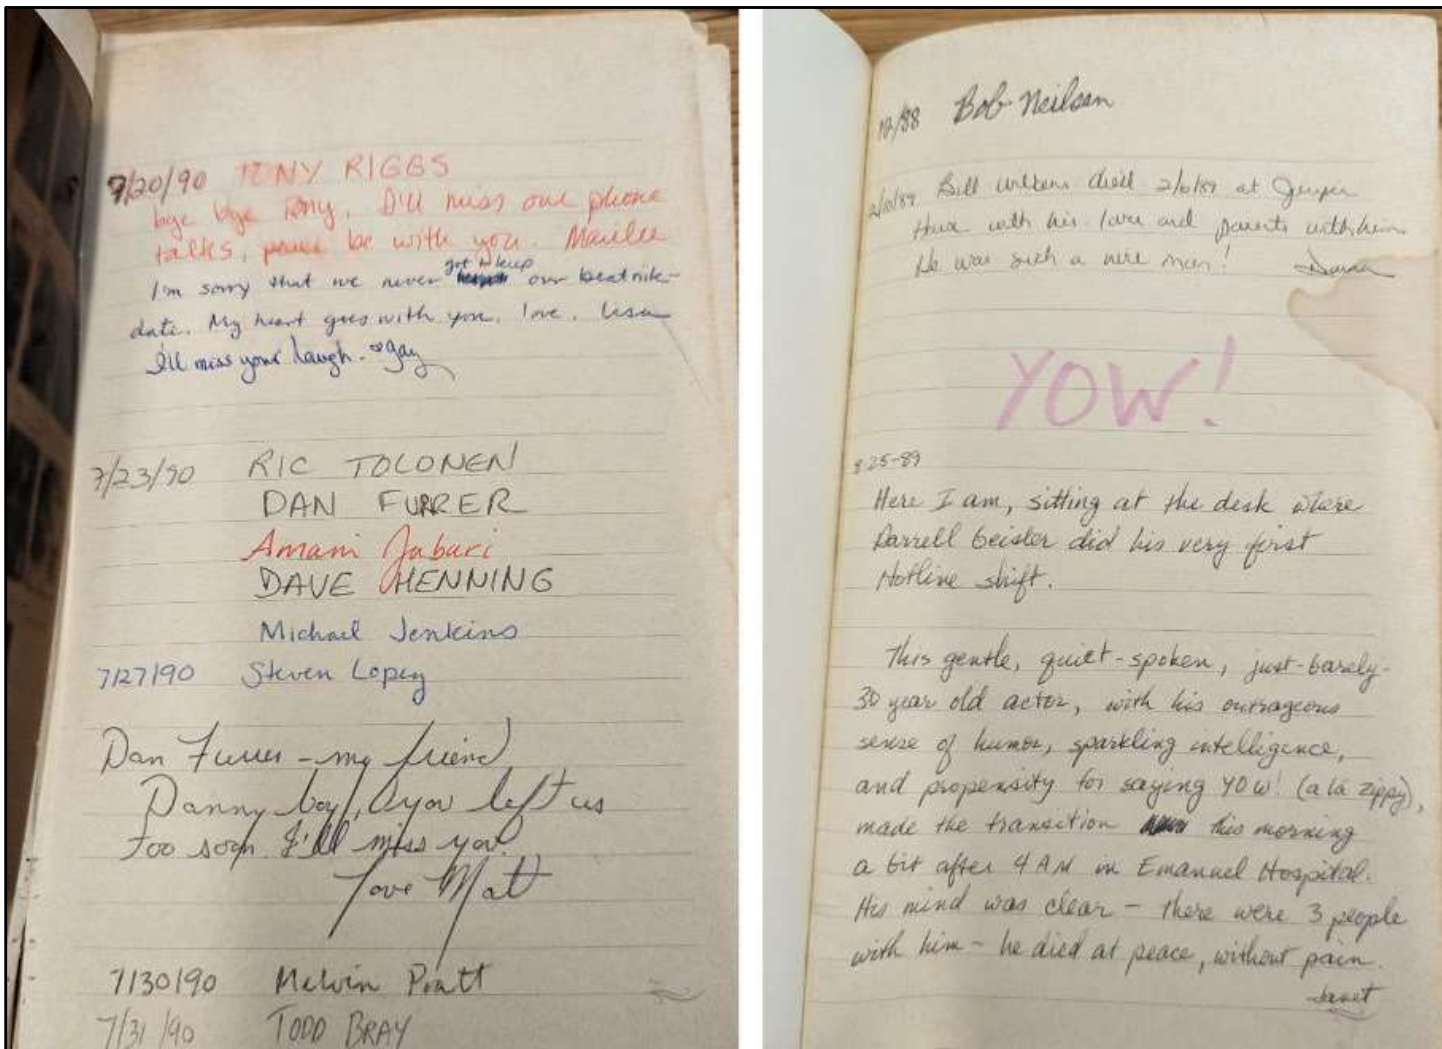 7/20/90 TONY RIGGS
bye bye Tony. I'll miss our phone
talks, peace be with you. Marilee
I'm sorry that we never got to keep our beatnik-
date. My heart goes with you. love, Lisa
I'll miss your laugh. Gay
7/23/90 RIC TOLONEN
DAN FURRER
Amani Jabari
DAVE HENNING
Michael Jenkins
7/27/90 Steven Lopez
Dan Furrer - my friend
Danny boy, you left us
too soon I'll miss you
Love Matt
7/30/90 Melvin Pratt
7/31/90 TODD BRAY
12/88 Bob Neilsen
2/10/89 Bill died 2/6/89 at Juniper
House with his love and parents with him
He was such a nice man!
YOW!
8-25-89
Here I am, sitting at the desk where
Darrell Geister did his very first
Hotline shift.
This gentle, quiet-spoken, just-barely-
30 year old actor, with his outrageous
sense of humor, sparkling intelligence,
and propensity for saying YOW! (a la Zippy),
made the transition this morning
a bit after 4 AM in Emanuel Hospital.
His mind was clear - there were 3 people
with him - he died at peace, without pain.
Janet